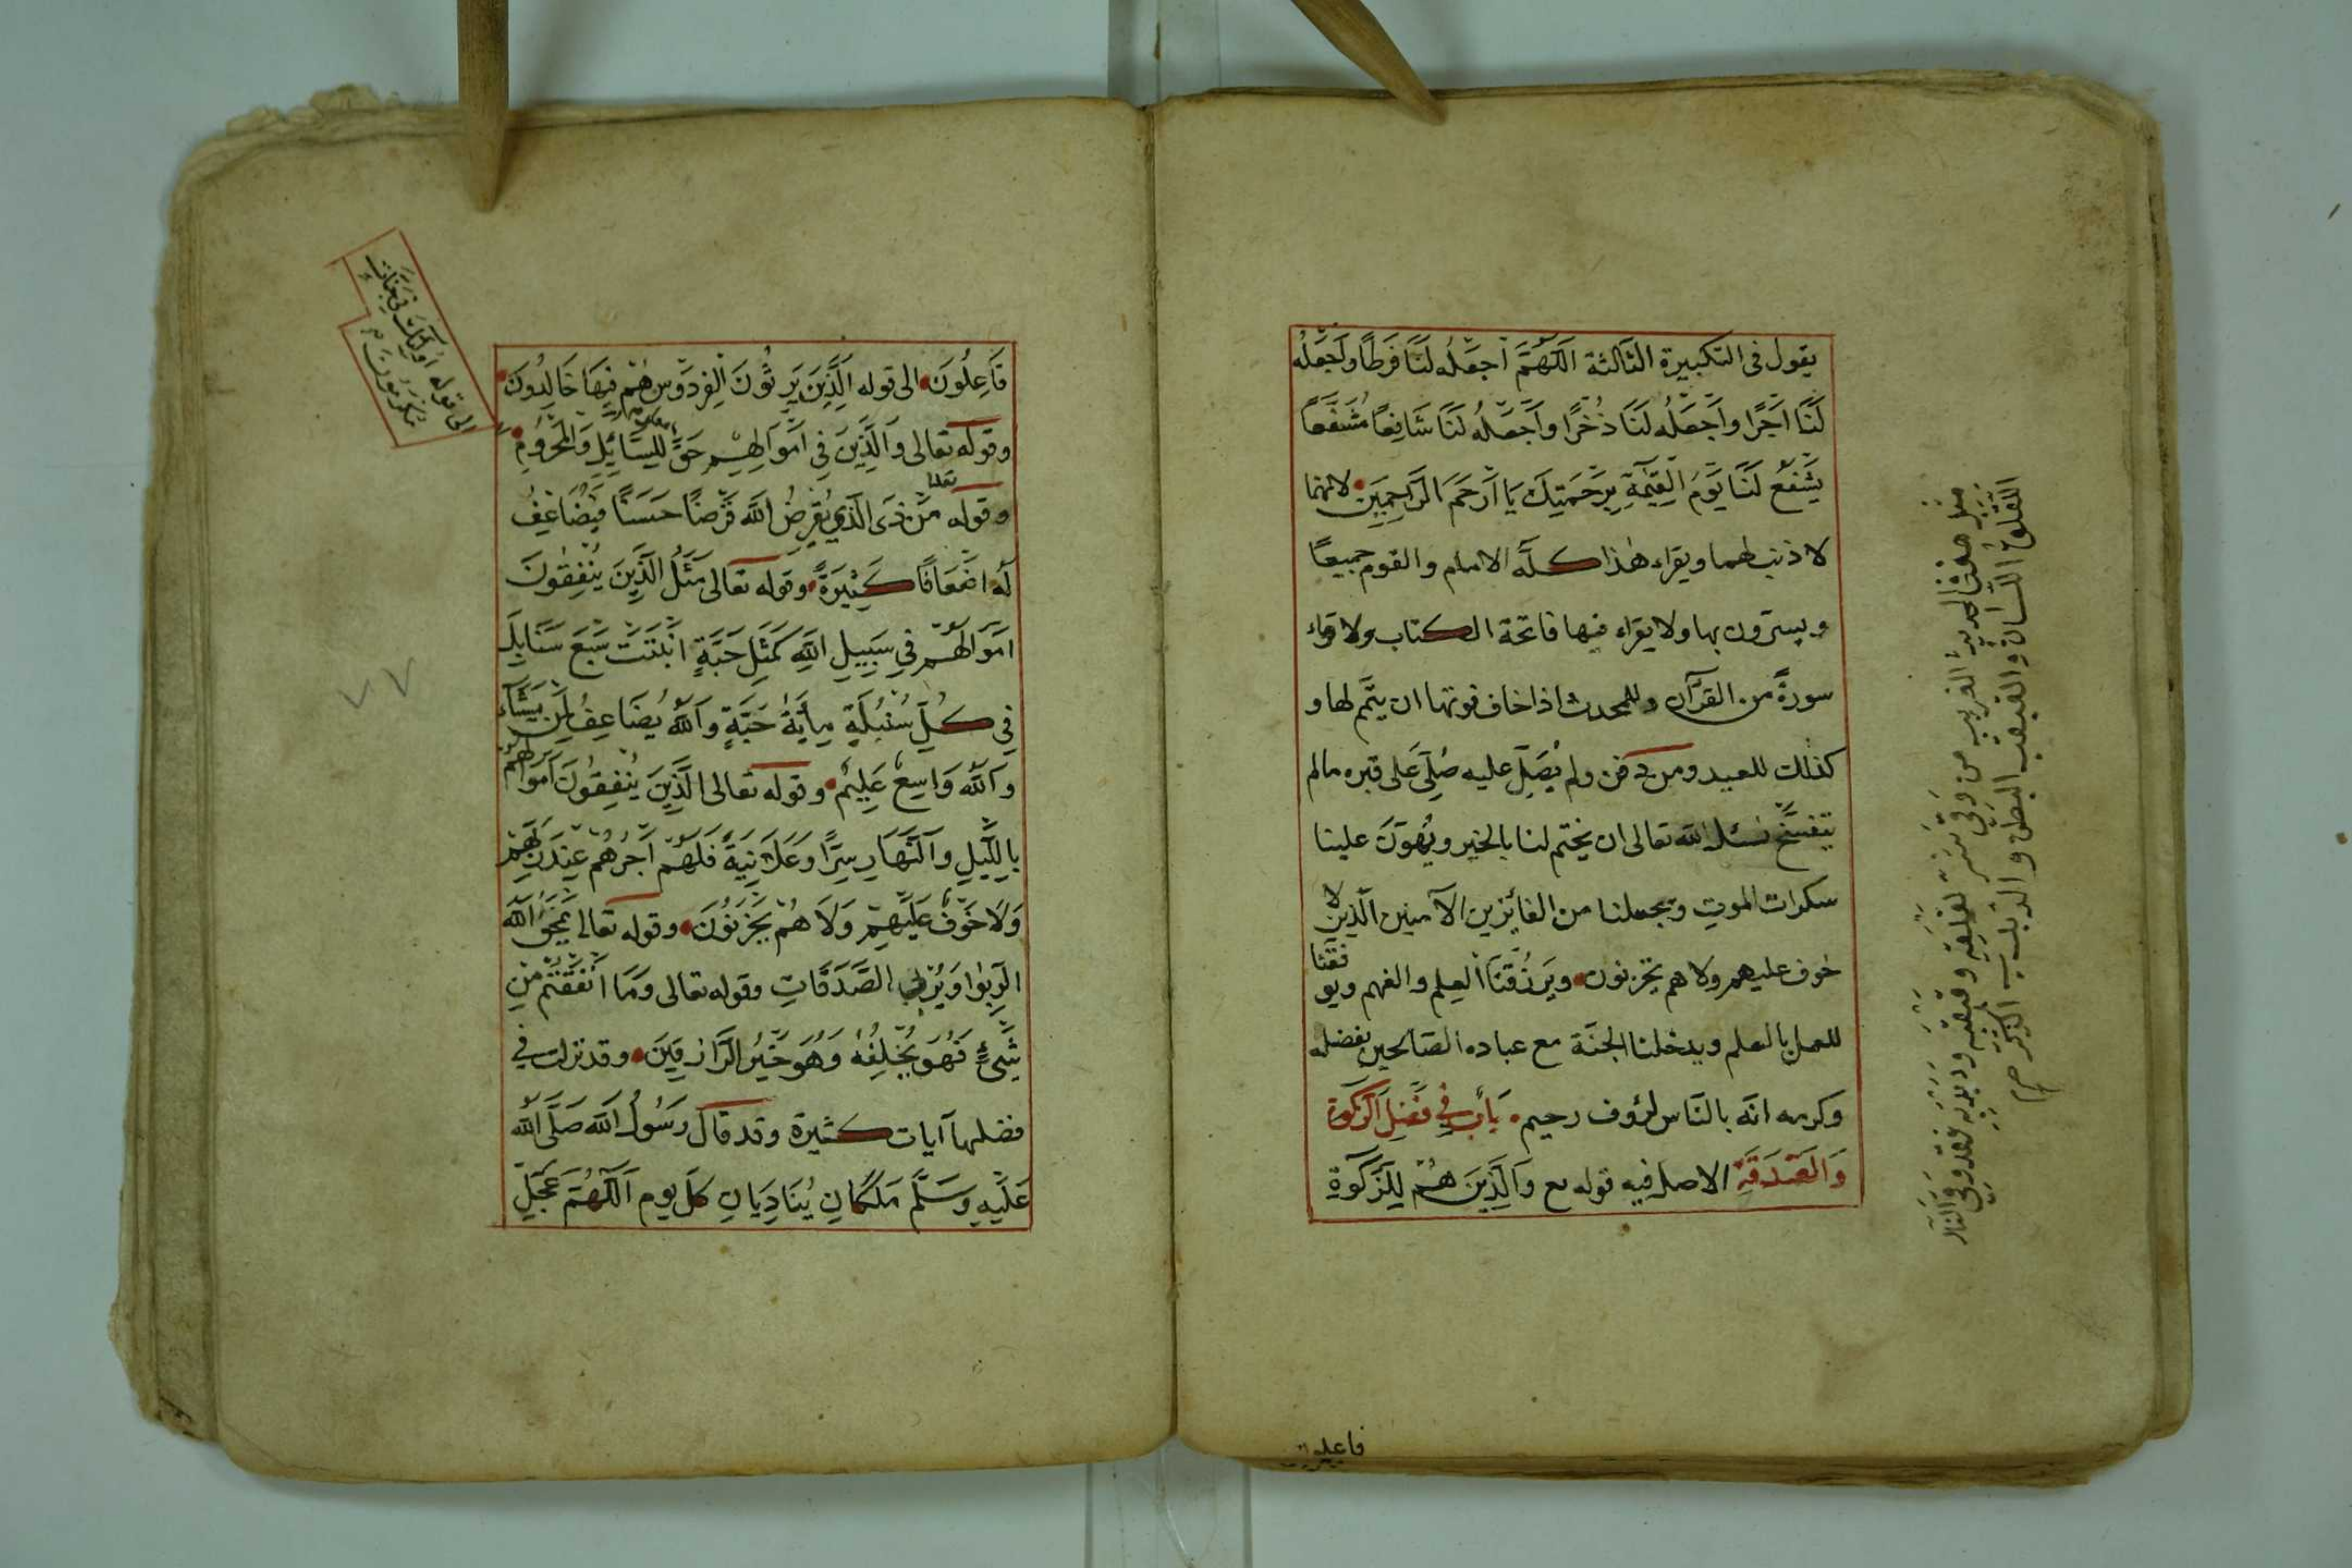 يقول فى التكبيرة الثالثة اَللّهُمَّ اجْعَلْهُ لَنَا فَرَطًا واَجْعَلْهُ
لَنَا اَجْرًا واَجْعَلْهُ لَنَا ذُخْرًا واَجْعَلْهُ لَنَا شَافِعًا مُشَفَّعًا
يَشْفَعُ لَنَا يَوْمَ الْقِيٰمَةِ بِرَحْمَتِكَ يَا اَرْحَمَ الرَّاحِمِينَ لانهما
لا ذنب لهما ويقراء هٰذا كلّه الامام والقوم جميعًا
ويسترون بها ولا يقراء فيها فاتحة الكتاب ولا قراء
سورةً من القرآن وللمحدث اذا خاف فوتها ان يتمّم لها و
كذلك للعيد ومن دفن ولم يُصَلِّ عليه صُلِّىَ عَلى قبره مالم
يتفسّخ نسئل الله تعالى ان يختم لنا بالخير ويُهوّنَ علينا
سكرات الموت ويجعلنا من الفائزين الآمنين الّذين لا
خوف عليهم ولا هم يحزنون ويَرْزُقَنَا العِلم والفهم ويوفّقنا
للعمل بالعلم ويدخلنا الجنّة مع عباده الصّالحين بفضله
وكرمه انّه بالنّاس لرؤف رحيم بَابٌ فِى فَضْلِ الزَّكوٰة
وَالصَّدَقَةِ الاصل فيه قوله تع وَالَّذِينَ هُمْ لِلزَّكوٰةِ
فاعلون
قيل مفث الحديث الغريب من وُقِىَ شرّ لقلقِهِ وقبقبِهِ وذبذبِهِ فقد وُقِىَ النّار
اللقلق اللسان والقبقب البطن والذبذب الذكر صح
فَاعِلُونَ الى قوله اَلَّذِينَ يَرِثُونَ الْفِرْدَوْسَ هُمْ فِيهَا خَالِدُونَ
وقوله تعالى وَالَّذِينَ فِى اَمْوَالِهِمْ حَقٌّ لِلسَّائِلِ وَالْمَحْرُومِ
معلوم
الى قوله اُولٰئِكَ فِى جَنَّاتٍ
مُكْرَمُونَ
وقوله تعالى مَنْ ذَى الَّذِى يُقْرِضُ اللّٰهَ قَرْضًا حَسَنًا فَيُضَاعِفُ
لَهُ اَضْعَافًا كَثِيرَةً وقوله تعالى مَثَلُ الَّذِينَ يُنْفِقُونَ
اَمْوَالَهُمْ فِى سَبِيلِ اللّٰهِ كَمَثَلِ حَبَّةٍ اَنْبَتَتْ سَبْعَ سَنَابِلَ
فِى كُلِّ سُنْبُلَةٍ مِأَيَةُ حَبَّةٍ وَاللّٰهُ يُضَاعِفُ لِمَنْ يَشَآءُ
وَاللّٰهُ وَاسِعٌ عَلِيمٌ وقوله تعالى الَّذِينَ يُنْفِقُونَ اَمْوَالَهُمْ
بِاللَّيْلِ وَالنَّهَارِ سِرًّا وَعَلَانِيَةً فَلَهُمْ اَجْرُهُمْ عِنْدَ رَبِّهِمْ
وَلَا خَوْفٌ عَلَيْهِمْ وَلَا هُمْ يَحْزَنُونَ وقوله تعالى يَمْحَقُ اللّٰهُ
الرِّبٰوا وَيُرْبِى الصَّدَقَاتِ وقوله تعالى وَمَا اَنْفَقْتُمْ مِنْ
شَىْءٍ فَهُوَ يُخْلِفُهُ وَهُوَ خَيْرُ الرَّازِقِينَ وقد نزلت فى
فضلها آيات كثيرة وقد قال رَسُولُ اللّٰه صَلَّى اللّٰه
عَلَيْهِ وَسَلَّم مَلَكَانِ يُنَادِيَانِ كلّ يوم اَللّٰهُمَّ عَجِّلْ
٧٧